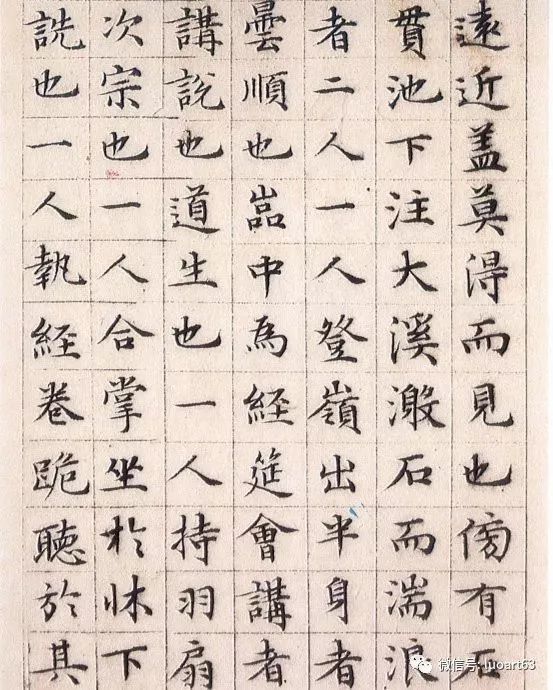 遠近盖莫得而見也傍有石
貫池下注大溪激石而湍浪
者二人一人登嶺出半身者
曇順也嵓中為經筵會講者
講說也道生也一人持羽扇
次宗也一人合掌坐於牀下
詵也一人執經卷跪聽於其
微信号: luoart63